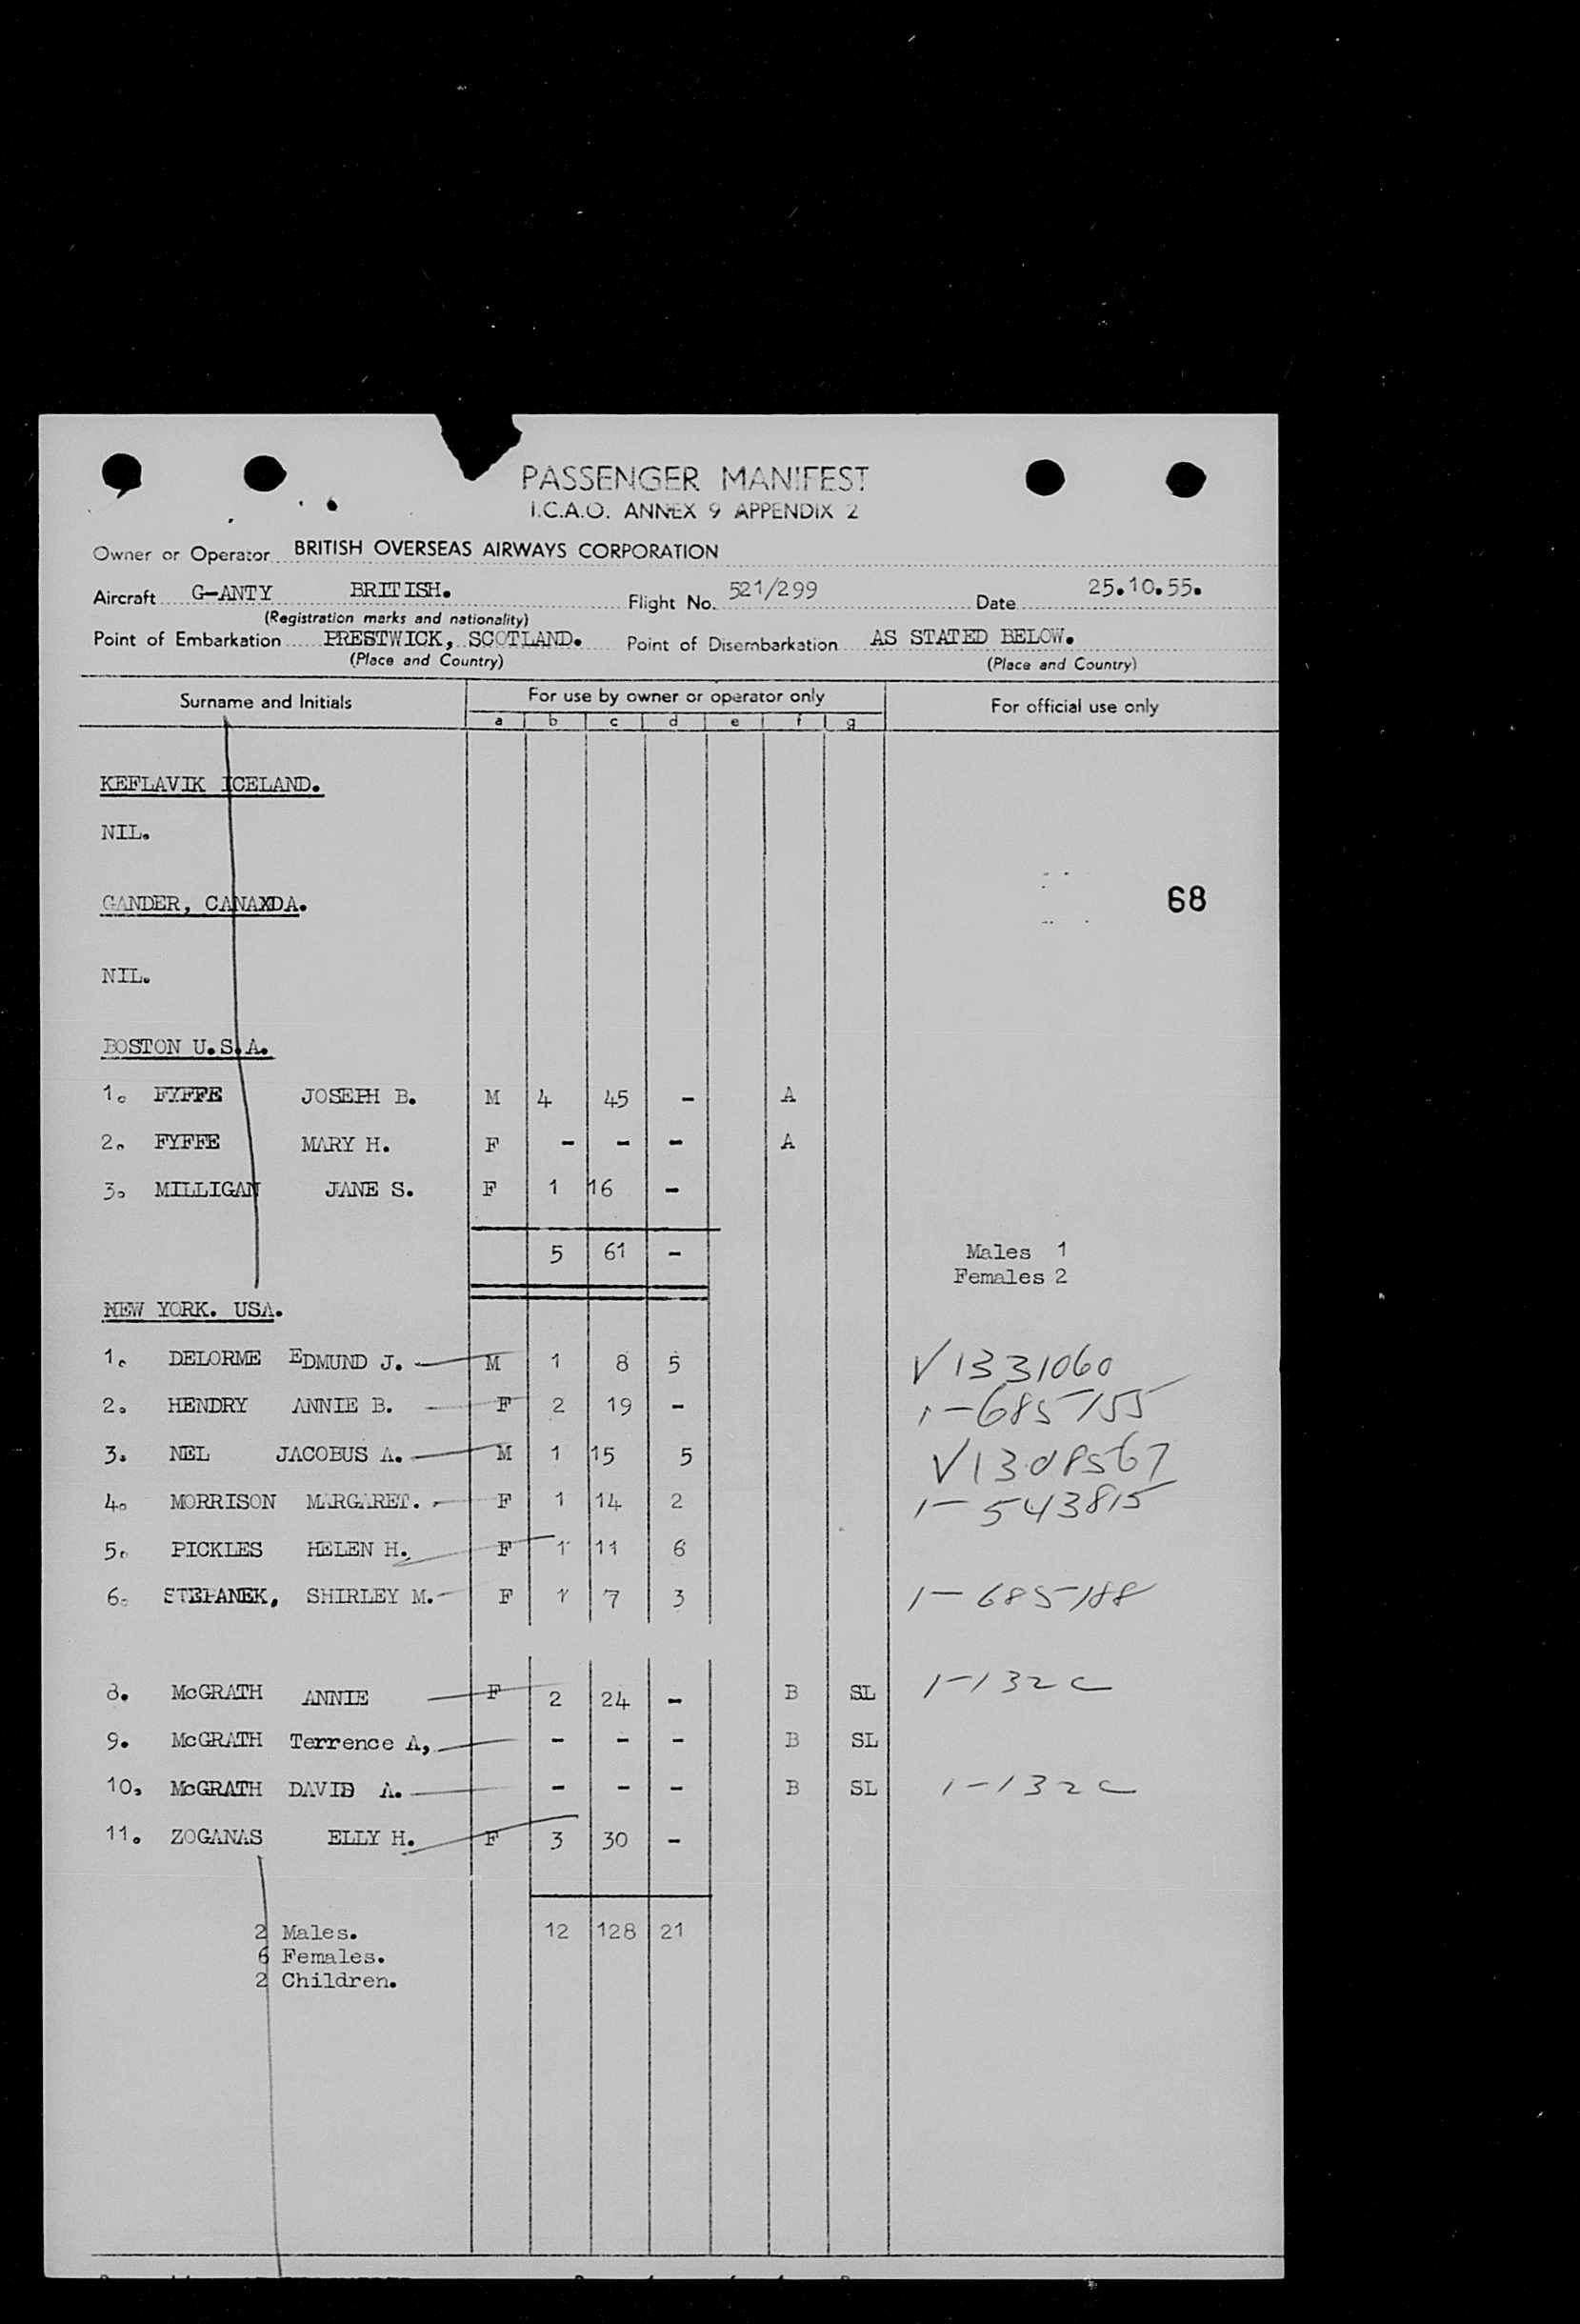 PASSENGER MANIFEST
I.C.A.O. ANNEX 9 APPENDIX 2
Owner or Operator BRITISH OVERSEAS AIRWAYS CORPORATION
Aircraft G-ANTY BRITISH. Flight No. 521/299 Date 25.10.55.
(Registration marks and nationality)
Point of Embarkation PRESTWICK, SCOTLAND. Point of Disembarkation AS STATED BELOW.
(Place and Country) (Place and Country)
Surname and Initials For use by owner or operator only For official use only
a b c d e f g
KEFLAVIK ICELAND.
NIL.
68
GANDER, CANAXDA.
NIL.
BOSTON U.S.A.
1. FYFFE JOSEPH B. M 4 45 - A
2. FYFFE MARY H. F - - - A
3. MILLIGAN JANE S. F 1 16 -
5 61 - Males 1
Females 2
NEW YORK. USA.
1. DELORME EDMUND J. M 1 8 5 V1331060
2. HENDRY ANNIE B. F 2 19 - 1-685155
3. NEL JACOBUS A. M 1 15 5 V1308567
4. MORRISON MARGARET. F 1 14 2 1-543815
5. PICKLES HELEN H. F 1 11 6
6. STEPANEK, SHIRLEY M. F 1 7 3 1-685188
8. McGRATH ANNIE F 2 24 - B SL 1-132C
9. McGRATH Terrence A, - - - B SL
10. McGRATH DAVID A. - - - B SL 1-132C
11. ZOGANAS ELLY H. F 3 30 -
2 Males. 12 128 21
6 Females.
2 Children.